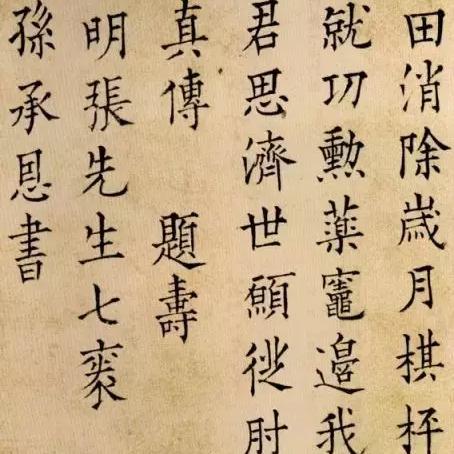 田消除嵗月棋枰
就功勲薬竈邊我
君思濟世願從肘
真傳　題壽
明張先生七袠
孫承恩書